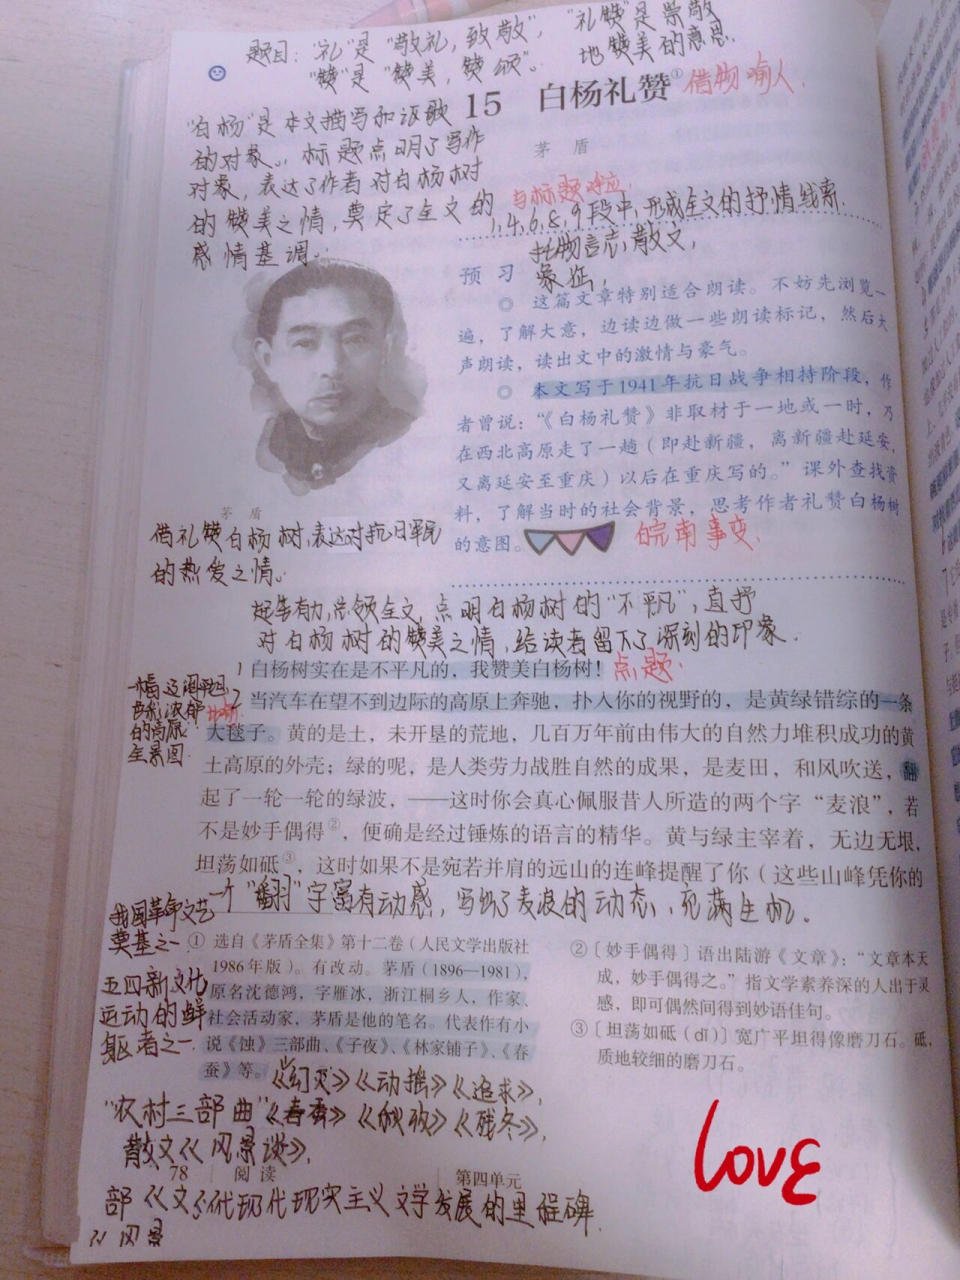 题目：“礼”是“敬礼，致敬”，“礼赞”是崇敬
“赞”是“赞美，赞颂”。地赞美的意思.
15 白杨礼赞① 借物喻人.
茅 盾
“白杨”是本文描写和讴歌
的对象。标题点明了写作
对象，表达了作者对白杨树
的赞美之情，奠定了全文的
感情基调。
与标题呼应.
1,4,6,8,9段中,形成全文的抒情线索.
托物言志,散文,
象征,
预 习
◎ 这篇文章特别适合朗读。不妨先浏览一
遍，了解大意，边读边做一些朗读标记，然后大
声朗读，读出文中的激情与豪气。
◎ 本文写于1941年抗日战争相持阶段，作
者曾说：“《白杨礼赞》非取材于一地或一时，乃
在西北高原走了一趟（即赴新疆，离新疆赴延安，
又离延安至重庆）以后在重庆写的。”课外查找资
料，了解当时的社会背景，思考作者礼赞白杨树
的意图。 皖南事变.
茅 盾
借礼赞白杨树,表达对抗日军民
的热爱之情。
起笔有力,总领全文,点明白杨树的“不平凡”,直抒
对白杨树的赞美之情,给读者留下了深刻的印象.
1 白杨树实在是不平凡的，我赞美白杨树！ 点题.
2 当汽车在望不到边际的高原上奔驰，扑入你的视野的，是黄绿错综的一条
大毯子。黄的是土，未开垦的荒地，几百万年前由伟大的自然力堆积成功的黄
土高原的外壳；绿的呢，是人类劳力战胜自然的成果，是麦田，和风吹送，翻
起了一轮一轮的绿波，——这时你会真心佩服昔人所造的两个字“麦浪”，若
不是妙手偶得②，便确是经过锤炼的语言的精华。黄与绿主宰着，无边无垠，
坦荡如砥③，这时如果不是宛若并肩的远山的连峰提醒了你（这些山峰凭你的
一幅辽阔平坦,
色彩浓郁
的高原
全景图.
比喻.
一个“翻”字富有动感，写出了麦浪的动态,充满生机.
我国革命文艺
奠基之一
五四新文化
运动的先
驱者之一.
① 选自《茅盾全集》第十二卷（人民文学出版社
1986年版）。有改动。茅盾（1896—1981），
原名沈德鸿，字雁冰，浙江桐乡人，作家、
社会活动家，茅盾是他的笔名。代表作有小
说《蚀》三部曲、《子夜》、《林家铺子》、《春
蚕》等。
② 〔妙手偶得〕语出陆游《文章》：“文章本天
成，妙手偶得之。”指文学素养深的人出于灵
感，即可偶然间得到妙语佳句。
③ 〔坦荡如砥（dǐ）〕宽广平坦得像磨刀石。砥，
质地较细的磨刀石。
《幻灭》《动摇》《追求》,
“农村三部曲”《春蚕》《秋收》《残冬》,
散文《风景谈》,
78 阅读 第四单元
现代现实主义文学发展的里程碑.
风景
love